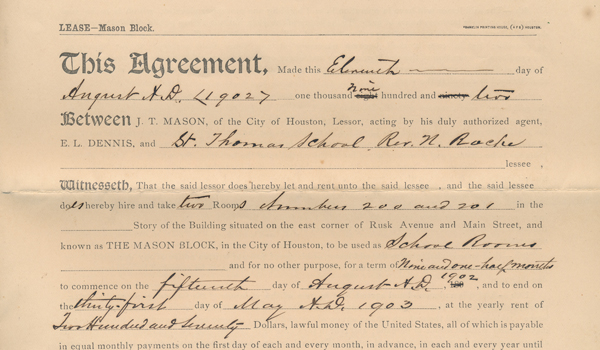 LEASE—Mason Block.
FRANKLIN PRINTING HOUSE, HOUSTON.
This Agreement, Made this Eleventh day of
August A.D. (1902) one thousand eight nine hundred and ninety two
Between J. T. MASON, of the City of Houston, Lessor, acting by his duly authorized agent,
E. L. DENNIS, and St. Thomas School Rev. N. Roche
lessee .
Witnesseth, That the said lessor does hereby let and rent unto the said lessee , and the said lessee
does hereby hire and take two Rooms Numbers 200 and 201 in the
Story of the Building situated on the east corner of Rusk Avenne and Main Street, and
known as THE MASON BLOCK, in the City of Houston, to be used as School Rooms
and for no other purpose, for a term of Nine and one-half months
to commence on the fifteenth day of August A.D. 1902, and to end on
the thirty-first day of May A.D. 1903 , at the yearly rent of
Two Hundred and seventy Dollars, lawful money of the United States, all of which is payable
in equal monthly payments on the first day of each and every month, in advance, in each and every year until